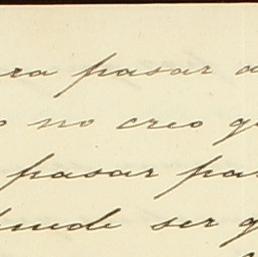 ra pasar a
o no creo q
pasar pa
uede ser q